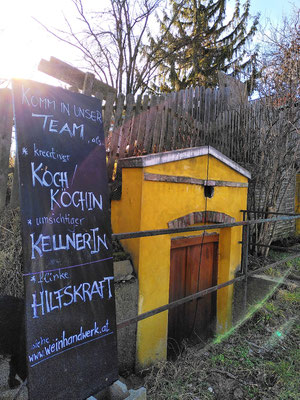 KOMM IN UNSER
TEAM, als
* kreativer
KOCH/
KÖCHIN
* umsichtiger
KELLNERIN
* flinke
HILFSKRAFT
siehe
www.weinhandwerk.at